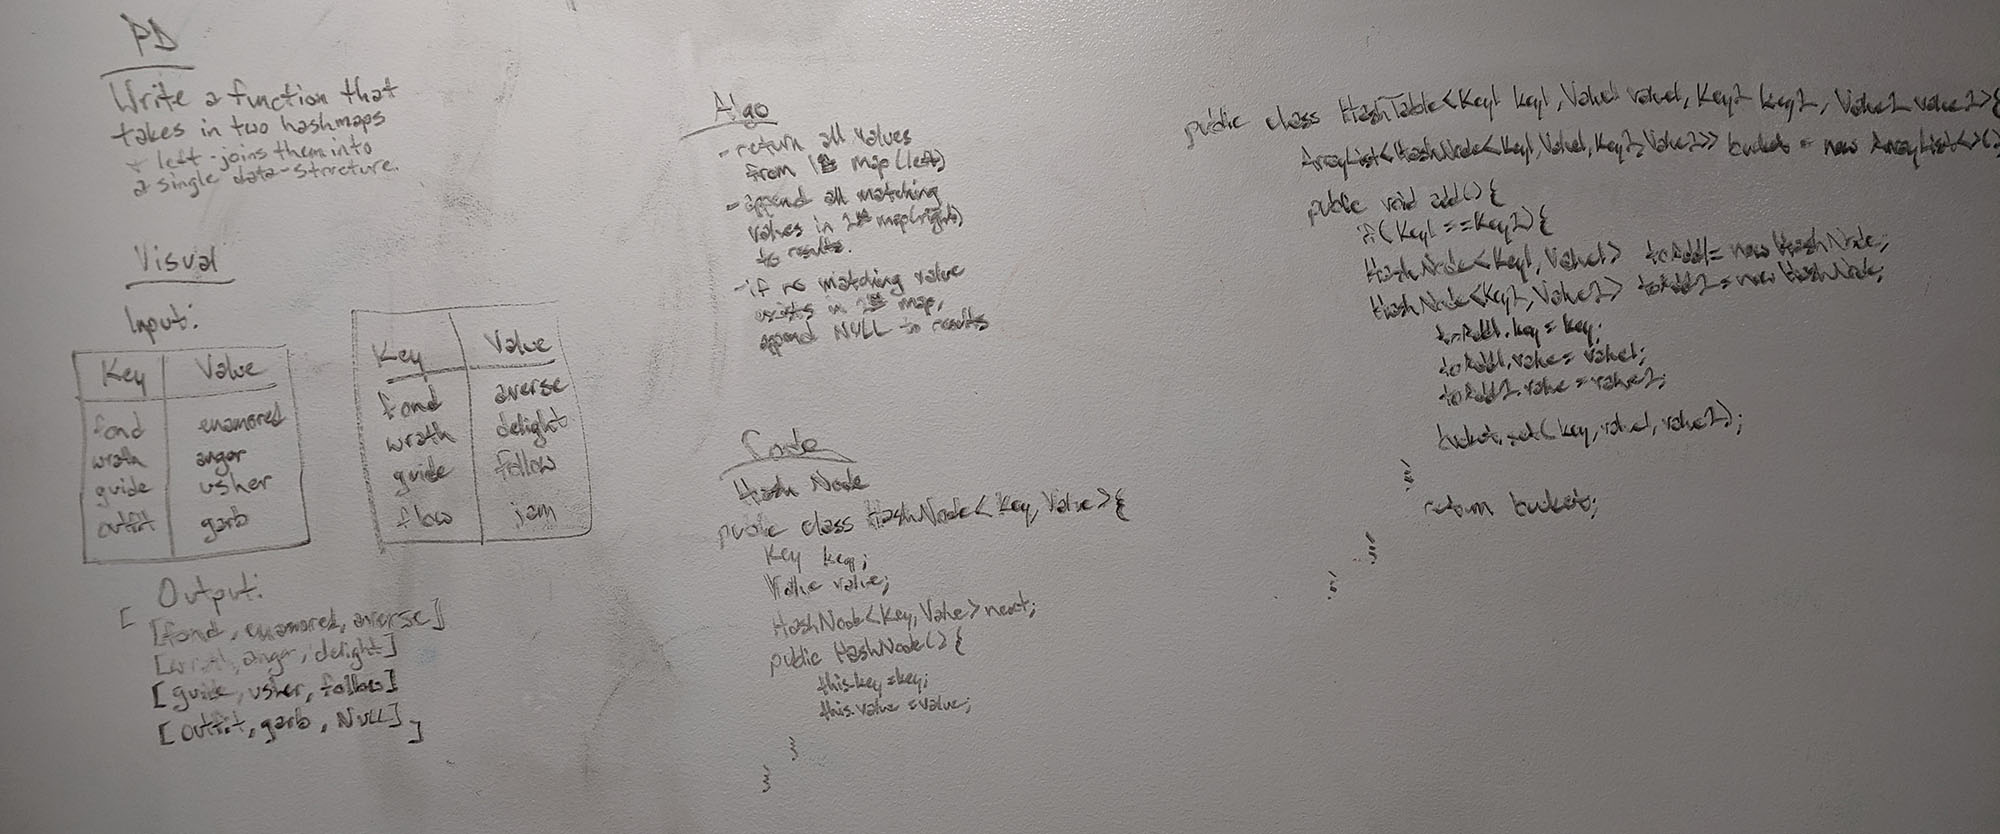 PD
Write a function that
takes in two hashmaps
+ left-joins them into
a single data-structure.
Visual
Input:
Key Value
fond enamored
wrath anger
guide usher
outfit garb
Key Value
fond averse
wrath delight
guide follow
flow jam
Output:
[
[fond, enamored, averse]
[wrath, anger, delight]
[guide, usher, follow]
[outfit, garb, NULL]
]
Algo
- return all values
from 1st map (left)
- append all matching
values in 2nd map (right)
to results.
- if no matching value
exists in 2nd map,
append NULL to results
Code
Hash Node
public class HashNode<Key, Value>{
Key key;
Value value;
HashNode<Key, Value> next;
public HashNode(){
this.key = key;
this.value = value;
}
}
public class HashTable<Key1 key1, Value1 value1, Key2 key2, Value2 value2>{
ArrayList<HashNode<Key1, Value1, Key2, Value2>> bucket = new ArrayList<>(
public void add(){
if(Key1 == Key2){
HashNode<Key1, Value1> toAdd1 = new HashNode;
HashNode<Key2, Value2> toAdd2 = new HashNode;
toAdd1.key = key;
toAdd1.value = value1;
toAdd2.value = value2;
bucket.set(key, value1, value2);
}
return bucket;
}
}